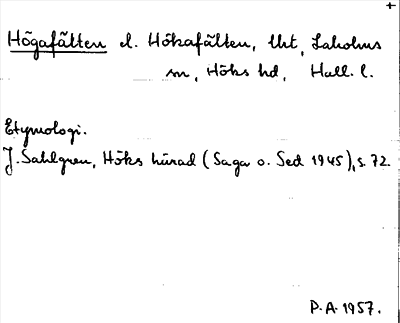 +
Högafälten el. Hökafälten, tht, Laholms
sn, Höks hd, Hall. l.
Etymologi.
J. Sahlgren, Höks härad (Saga o. Sed 1945), s. 72.
P. A. 1957.